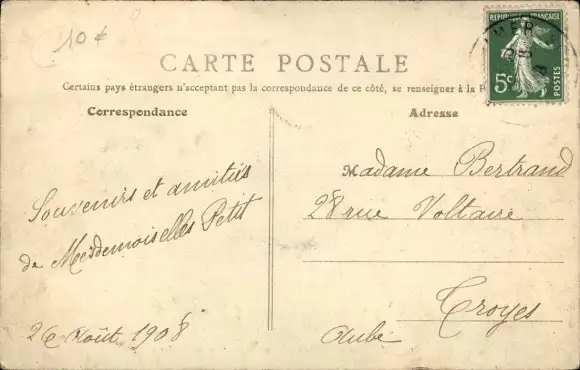 10€
CARTE POSTALE
Certains pays étrangers n'acceptant pas la correspondance de ce côté, se renseigner à la P
Correspondance
Adresse
RÉPUBLIQUE FRANÇAISE
5c
POSTES
MER
Souvenirs et amitiés
de Mesdemoiselles Petit
26 Août 1908
Madame Bertrand
28 rue Voltaire
Troyes
Aube